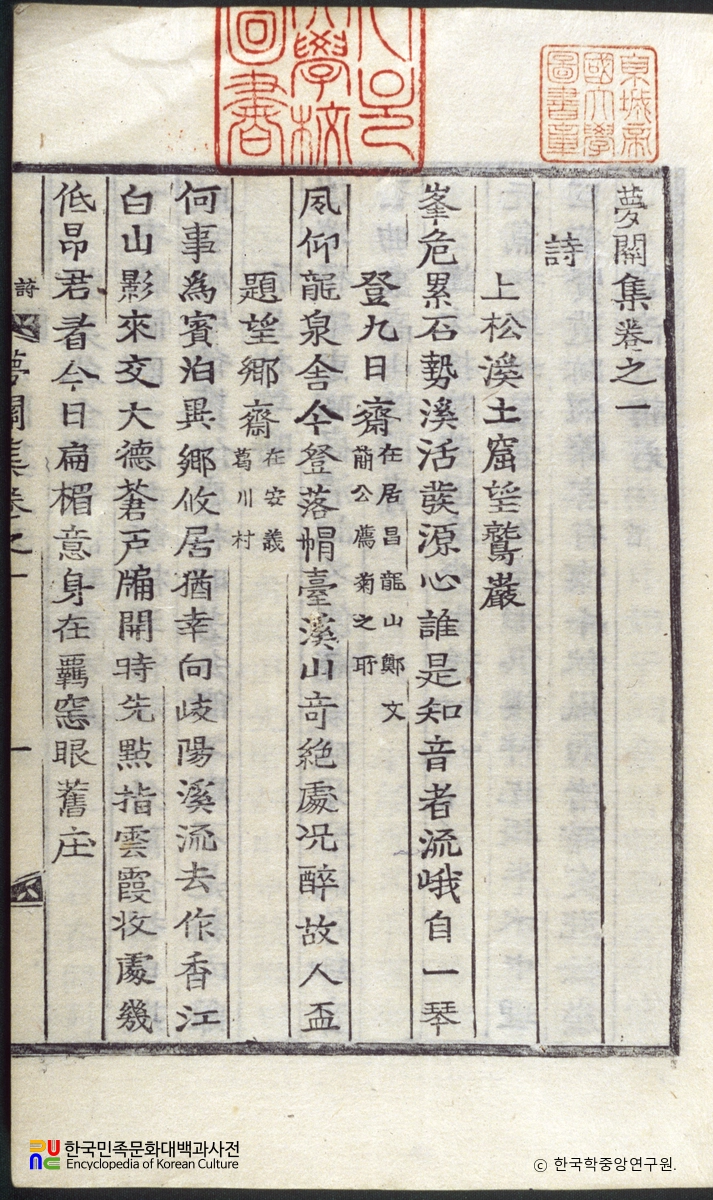 夢關集卷之一
詩
上松溪土窟望鷲巖
峯危累石勢溪活發源心誰是知音者流峨自一琴
登九日齋在居昌龍山鄭文簡公薦菊之所
夙仰龍泉舍今登落帽臺溪山奇絶處况醉故人盃
題望鄉齋在安義葛川村
何事為賓泊異鄉攸居猶幸向岐陽溪流去作香江
白山影來交大德蒼戶牖開時先點指雲霞收處幾
低昂君看今日扁楣意身在覊窓眼舊庄
詩
夢關集卷之一
一
京城帝國大學圖書章
學校圖書
한국민족문화대백과사전
Encyclopedia of Korean Culture
ⓒ 한국학중앙연구원.